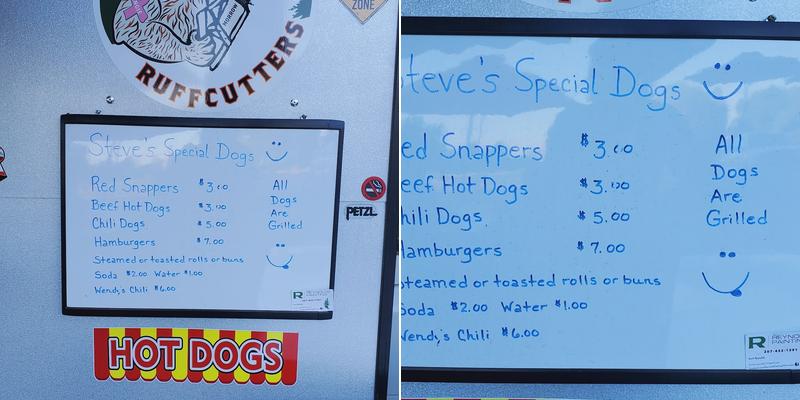 ZONE
RUFFCUTTERS
Steve's Special Dogs
Red Snappers $3.00
Beef Hot Dogs $3.00
Chili Dogs $5.00
Hamburgers $7.00
All
Dogs
Are
Grilled
Steamed or toasted rolls or buns
Soda $2.00 Water $1.00
Wendy's Chili $6.00
PETZL
R REYNOLDS
PAINTING
HOT DOGS
Steve's Special Dogs
ed Snappers $3.00
eef Hot Dogs $3.00
hili Dogs $5.00
Hamburgers $7.00
All
Dogs
Are
Grilled
Steamed or toasted rolls or buns
Soda $2.00 Water $1.00
Wendy's Chili $6.00
R REYNO
PAINTIN